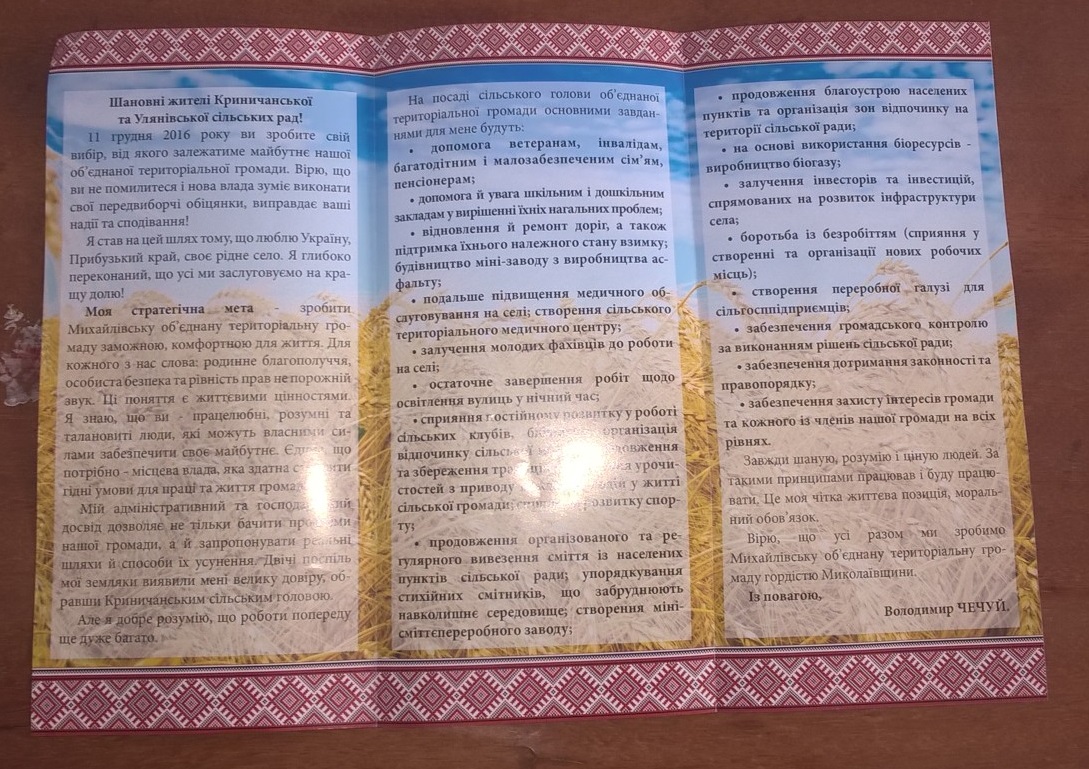 Шановні жителі Криничанської
та Улянівської сільських рад!
11 грудня 2016 року ви зробите свій
вибір, від якого залежатиме майбутнє нашої
об'єднаної територіальної громади. Вірю, що
ви не помилитеся і нова влада зуміє виконати
свої передвиборчі обіцянки, виправдає ваші
надії та сподівання!
Я став на цей шлях тому, що люблю Україну,
Прибузький край, своє рідне село. Я глибоко
переконаний, що усі ми заслуговуємо на кра-
щу долю!
Моя стратегічна мета - зробити
Михайлівську об'єднану територіальну гро-
маду заможною, комфортною для життя. Для
кожного з нас слова: родинне благополуччя,
особиста безпека та рівність прав не порожній
звук. Ці поняття є життєвими цінностями.
Я знаю, що ви - працелюбні, розумні та
талановиті люди, які можуть власними си-
лами забезпечити своє майбутнє. Єдине, що
потрібно - місцева влада, яка здатна
гідні умови для праці та життя
Мій адміністративний та
досвід дозволяє не тільки бачити проблеми
нашої громади, а й запропонувати реальні
шляхи й способи їх усунення. Двічі поспіль
мої земляки виявили мені велику довіру, об-
равши Криничанським сільським головою.
Але я добре розумію, що роботи попереду
ще дуже багато.
На посаді сільського голови об'єднаної
територіальної громади основними завдан-
нями для мене будуть:
• допомога ветеранам, інвалідам,
багатодітним і малозабезпеченим сім'ям,
пенсіонерам;
• допомога й увага шкільним і дошкільним
закладам у вирішенні їхніх нагальних проблем;
• відновлення й ремонт доріг, а також
підтримка їхнього належного стану взимку;
будівництво міні-заводу з виробництва ас-
фальту;
• подальше підвищення медичного об-
слуговування на селі; створення сільського
територіального медичного центру;
• залучення молодих фахівців до роботи
на селі;
• остаточне завершення робіт щодо
освітлення вулиць у нічний час;
• сприяння постійному розвитку у роботі
сільських клубів, організація
відпочинку сільської
та збереження урочи-
стостей з приводу у житті
сільської громади; розвитку спор-
ту;
• продовження організованого та ре-
гулярного вивезення сміття із населених
пунктів сільської ради; упорядкування
стихійних смітників, що забруднюють
навколишнє середовище; створення міні-
сміттєпереробного заводу;
• продовження благоустрою населених
пунктів та організація зон відпочинку на
території сільської ради;
• на основі використання біоресурсів -
виробництво біогазу;
• залучення інвесторів та інвестицій,
спрямованих на розвиток інфраструктури
села;
• боротьба із безробіттям (сприяння у
створенні та організації нових робочих
місць);
• створення переробної галузі для
сільгосппідприємців;
• забезпечення громадського контролю
за виконанням рішень сільської ради;
• забезпечення дотримання законності та
правопорядку;
• забезпечення захисту інтересів громади
та кожного із членів нашої громади на всіх
рівнях.
Завжди шаную, розумію і ціную людей. За
такими принципами працював і буду працю-
вати. Це моя чітка життєва позиція, мораль-
ний обов'язок.
Вірю, що усі разом ми зробимо
Михайлівську об'єднану територіальну гро-
маду гордістю Миколаївщини.
Із повагою,
Володимир ЧЕЧУЙ.